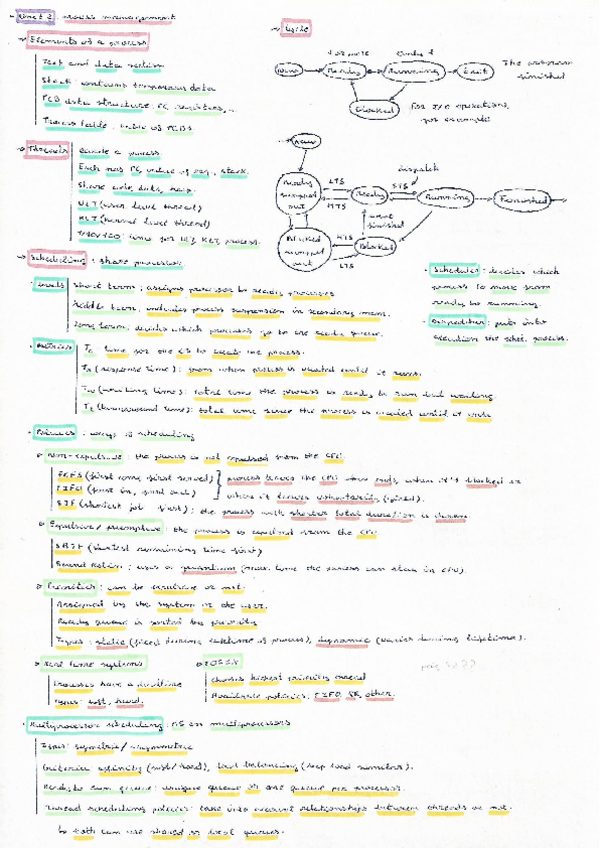 Unit 2: Process management
Elements of a process
Text and data section
Stack: contains temporary data
PCB data structure: PC, registers, ...
Process table: table of PCBs
Cycle
new
Ready
Running
Exit
Blocked
The program
finished
for I/O operations,
for example
Threads
Each has PC, value of reg., stack.
Share code, data, heap.
ULT (user level thread)
KLT (kernel level thread)
new
Ready
suspended
LTS
MTS
Ready
STS
dispatch
Running
Finished
Blocked
suspended
MTS
LTS
Blocked
finished
Scheduling: share processor
Levels
Short term: assigns processor to ready processes
Middle term: process suspension in secondary mem.
Long term: decides which processes go to the ready queue.
Scheduler: decides which
process to move from
ready to running.
Dispatcher: puts into
execution the process.
Metrics
time for the OS to create the process.
(response time): from when process is created until it runs.
(waiting time): total time the process is ready to run but waiting
(turnaround time): total time since the process is created until it ends
Policies: ways of scheduling
Non-expulsive: the process is not expulsed from the CPU.
FCFS (first come, first served)
FIFO (first in, first out)
process leaves the CPU when ends, when it's blocked or
when it leaves voluntarily (yield).
SJF (shortest job first): the process with shorter total duration is chosen
Expulsive/preemptive: the process is expulsed from the CPU
SRTF (shortest remaining time first)
Round robin: uses a quantum (max. time the process can stay in CPU).
Priorities: can be expulsive or not.
Assigned by the system or the user.
Ready queue is sorted by priority
Types: static (fixed during lifetime of process), dynamic (varies during lifetime).
Real time systems
Processes have a deadline
Types: soft, hard.
POSIX
chooses highest priority thread
Available policies: FIFO, RR, other.
Multiprocessor scheduling: OS on multiprocessors
Types: symmetric/asymmetric
Criteria: affinity (soft/hard), load balancing (keep load symmetric).
Ready to run queue: unique queue or one queue per processor.
Thread scheduling policies: take into account relationships between threads or not.
both can use shared or local queues.